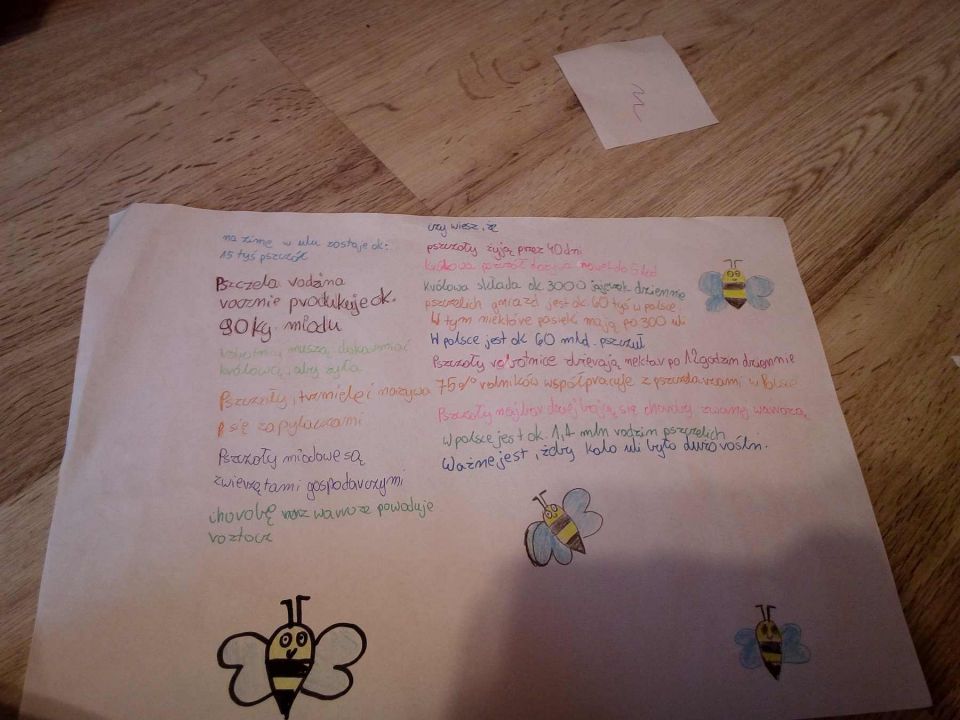 czy wiesz, że
na zimę w ulu zostaje ok:
15 tyś pszczół
Pszczela rodzina
rocznie produkuje ok.
90 kg. miodu
robotnice muszą dokarmiać
królową, aby żyła
Pszczoły, trzmiele i nazywa
się zapylaczami
Pszczoły miodowe są
zwierzętami gospodarczymi
chorobę warroze powoduje
roztocz
pszczoły żyją przez 40 dni
królowa pszczół dożywa nawet do 5 lat
królowa składa ok 3000 jajeczek dziennie
pszczelich gniazd jest ok 60 tyś w polsce,
W tym niektóre pasieki mają po 300 uli
W polsce jest ok 60 mld. pszczuł
Pszczoły robotnice zbierają nektar po 12 godzin dziennie
75% rolników współpracuje z pszczelarzami w Polsce
Pszczoły najbardziej boją się choroby zwanej warrozą
W polsce jest ok. 1,4 mln rodzin pszczelich
Ważne jest, żeby koło uli było dużo roślin.